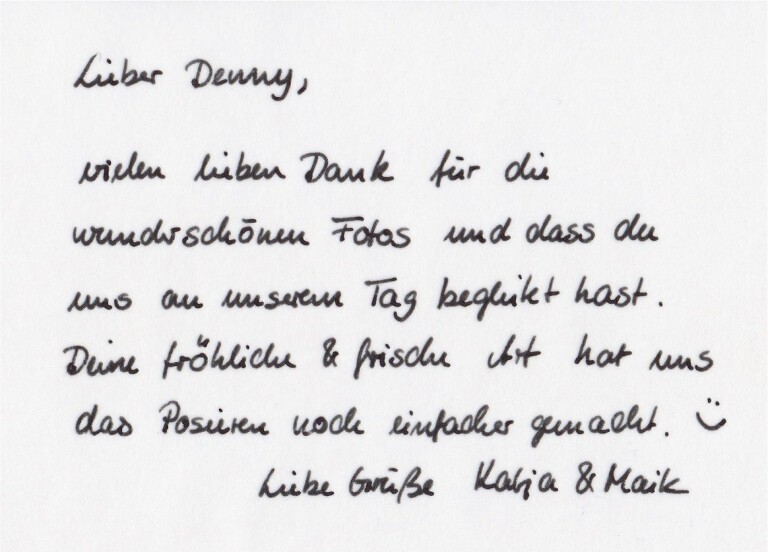 Lieber Denny,
vielen lieben Dank für die
wunderschönen Fotos und dass du
uns an unserem Tag begleitet hast.
Deine fröhliche & frische Art hat uns
das Posieren noch einfacher gemacht. :)
Liebe Grüße Katja & Maik